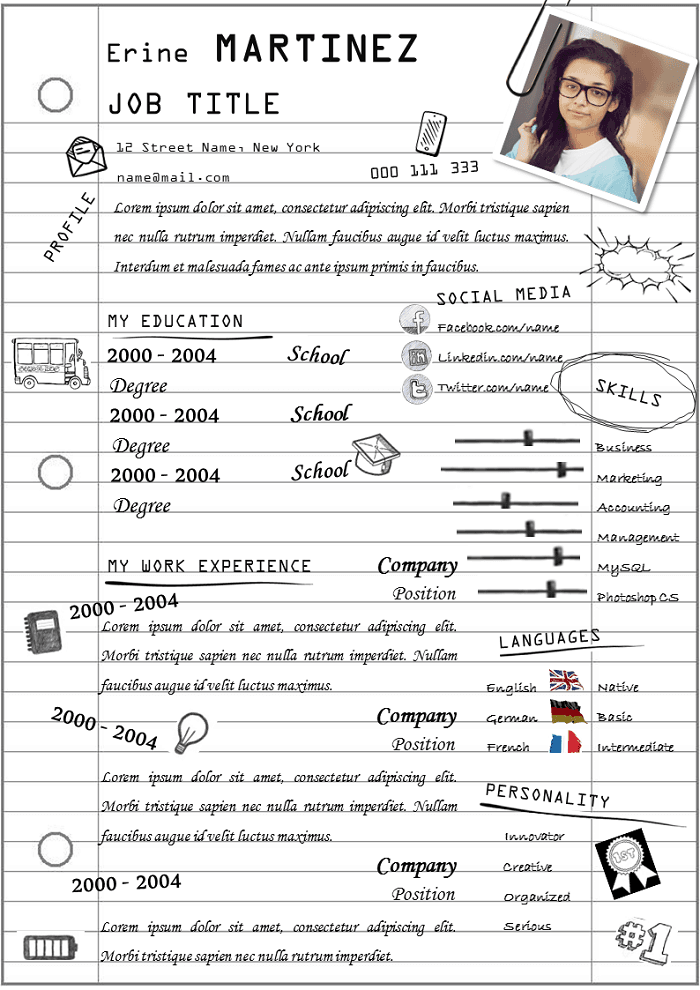 Erine MARTINEZ
JOB TITLE
12 Street Name, New York
name@mail.com
000 111 333
PROFILE
Lorem ipsum dolor sit amet, consectetur adipiscing elit. Morbi tristique sapien
nec nulla rutrum imperdiet. Nullam faucibus augue id velit luctus maximus.
Interdum et malesuada fames ac ante ipsum primis in faucibus.
MY EDUCATION
2000 - 2004 School
Degree
2000 - 2004 School
Degree
2000 - 2004 School
Degree
SOCIAL MEDIA
f
Facebook.com/name
in
Linkedin.com/name
t
Twitter.com/name
SKILLS
Business
Marketing
Accounting
Management
MySQL
Photoshop CS
MY WORK EXPERIENCE
Company
2000 - 2004 Position
Lorem ipsum dolor sit amet, consectetur adipiscing elit.
Morbi tristique sapien nec nulla rutrum imperdiet. Nullam
faucibus augue id velit luctus maximus.
2000 - 2004 Company
Position
Lorem ipsum dolor sit amet, consectetur adipiscing elit.
Morbi tristique sapien nec nulla rutrum imperdiet. Nullam
faucibus augue id velit luctus maximus.
Company
2000 - 2004 Position
Lorem ipsum dolor sit amet, consectetur adipiscing elit.
Morbi tristique sapien nec nulla rutrum imperdiet.
LANGUAGES
English Native
German Basic
French Intermediate
PERSONALITY
Innovator
Creative
Organized
Serious
1ST
#1